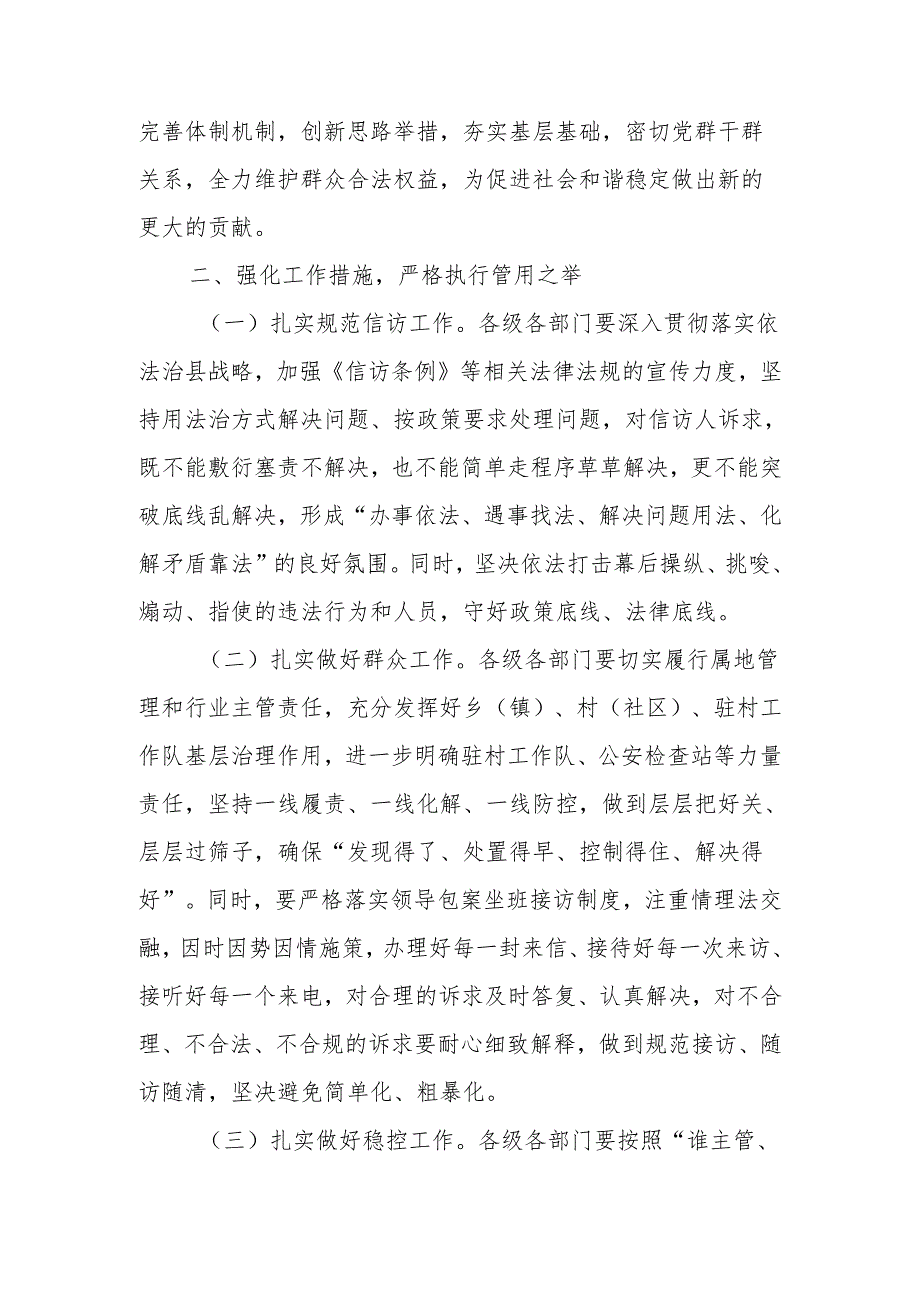 完善体制机制，创新思路举措，夯实基层基础，密切党群干群
关系，全力维护群众合法权益，为促进社会和谐稳定做出新的
更大的贡献。
二、强化工作措施，严格执行管用之举
（一）扎实规范信访工作。各级各部门要深入贯彻落实依
法治县战略，加强《信访条例》等相关法律法规的宣传力度，坚
持用法治方式解决问题、按政策要求处理问题，对信访人诉求，
既不能敷衍塞责不解决，也不能简单走程序草草解决，更不能突
破底线乱解决，形成“办事依法、遇事找法、解决问题用法、化
解矛盾靠法”的良好氛围。同时，坚决依法打击幕后操纵、挑唆、
煽动、指使的违法行为和人员，守好政策底线、法律底线。
（二）扎实做好群众工作。各级各部门要切实履行属地管
理和行业主管责任，充分发挥好乡（镇）、村（社区）、驻村工
作队基层治理作用，进一步明确驻村工作队、公安检查站等力量
责任，坚持一线履责、一线化解、一线防控，做到层层把好关、
层层过筛子，确保“发现得了、处置得早、控制得住、解决得
好”。同时，要严格落实领导包案坐班接访制度，注重情理法交
融，因时因势因情施策，办理好每一封来信、接待好每一次来访、
接听好每一个来电，对合理的诉求及时答复、认真解决，对不合
理、不合法、不合规的诉求要耐心细致解释，做到规范接访、随
访随清，坚决避免简单化、粗暴化。
（三）扎实做好稳控工作。各级各部门要按照“谁主管、